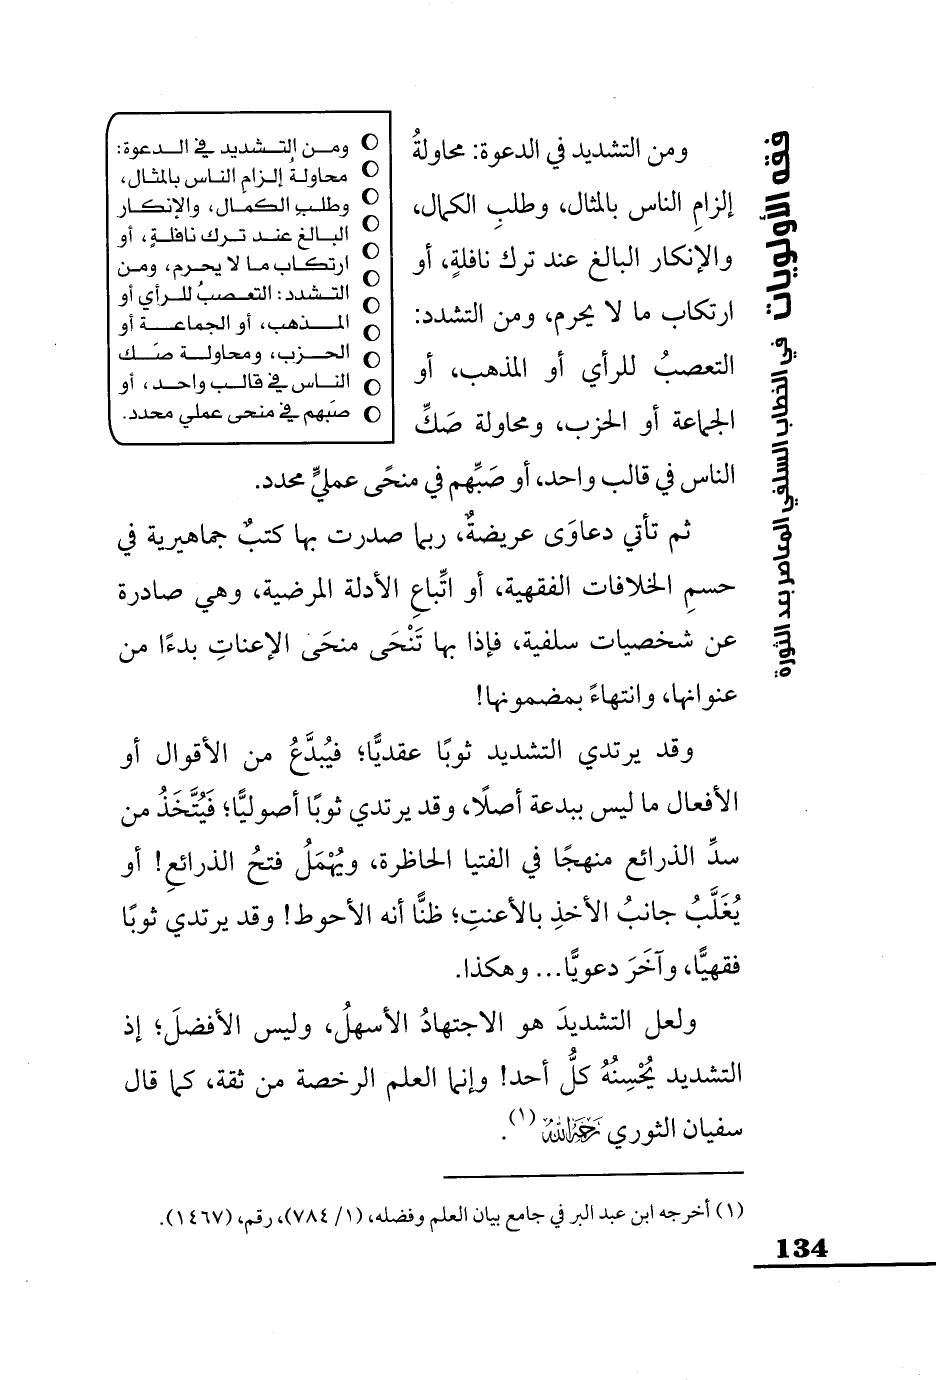 فقه الأولويات في الخطاب السلفي المعاصر بعد الثورة
ومن التشديد في الدعوة: محاولةُ
إلزامِ الناس بالمثال، وطلبِ الكمال،
والإنكار البالغ عند ترك نافلةٍ، أو
ارتكاب ما لا يحرم، ومن التشدد:
التعصبُ للرأي أو المذهب، أو
الجماعة أو الحزب، ومحاولة صَكِّ
الناس في قالب واحد، أو صَبِّهم في منحًى عمليٍّ محدد.
ومـن التـشديد في الـدعوة:
محاولةُ إلـزام النـاس بالمثـال،
وطلـبِ الكمـال، والإنكـار
البـالغ عنـد تـرك نافلـةٍ، أو
ارتكـاب ما لا يحرم، ومـن
التـشدد: التعـصبُ للـرأي أو
المـذهب، أو الجماعـة أو
الحـزب، ومحاولـة صَـك
النـاس في قالـب واحـد، أو
صَبّهم في منحى عملي محدد.
ثم تأتي دعاوَى عريضةٌ، ربما صدرت بها كتبٌ جماهيرية في
حسمِ الخلافات الفقهية، أو اتِّباعِ الأدلة المرضية، وهي صادرة
عن شخصيات سلفية، فإذا بها تَنْحَى منحَى الإعناتِ بدءًا من
عنوانها، وانتهاءً بمضمونها!
وقد يرتدي التشديد ثوبًا عقديًّا؛ فيُبدَّعُ من الأقوال أو
الأفعال ما ليس ببدعة أصلًا، وقد يرتدي ثوبًا أصوليًّا؛ فيُتَّخَذُ من
سدِّ الذرائع منهجًا في الفتيا الحاظرة، ويُهْمَلُ فتحُ الذرائعِ! أو
يُغَلَّبُ جانبُ الأخذِ بالأعنتِ؛ ظنًّا أنه الأحوط! وقد يرتدي ثوبًا
فقهيًّا، وآخَرَ دعويًّا... وهكذا.
ولعل التشديدَ هو الاجتهادُ الأسهلُ، وليس الأفضلَ؛ إذ
التشديد يُحْسِنُهُ كلُّ أحد! وإنما العلم الرخصة من ثقة، كما قال
سفيان الثوري رَحِمَهُ اللَّهُ (١).
(١) أخرجه ابن عبد البر في جامع بيان العلم وفضله، (١/ ٧٨٤)، رقم، (١٤٦٧).
134